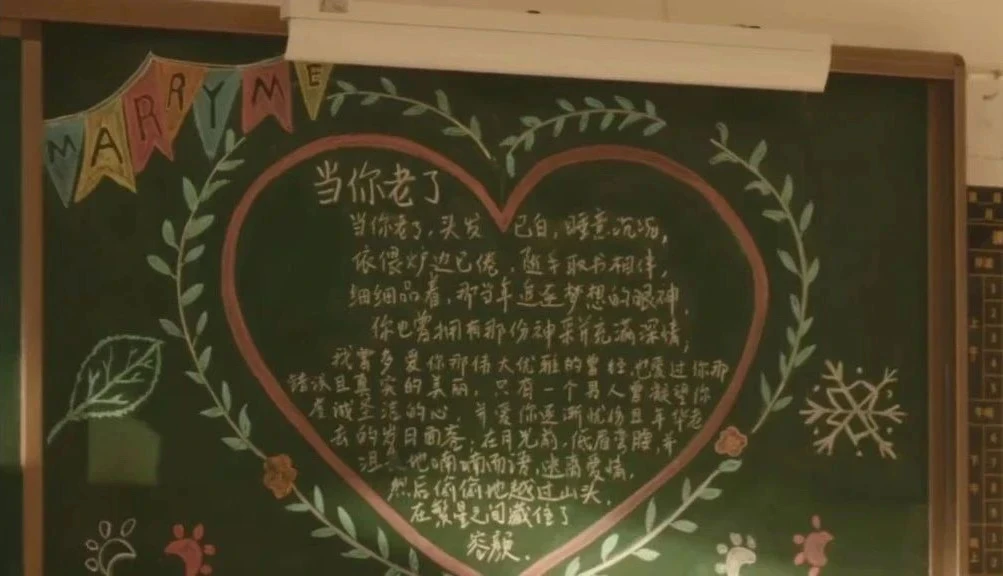 MARRY ME
当你老了
当你老了,头发 已白,睡意沉沉,
依偎炉边已倦,随手取书相伴,
细细品看,那当年追逐梦想的眼神,
你也曾拥有那份神采并充满深情,
我曾多爱你那伟大优雅的曾经,也爱过你那
错误且真实的美丽,只有一个男人曾凝望你
虔诚生活的心,并爱你逐渐忧伤且年华老
去的岁月面卷;在月光前,低眉弯腰,并
沮 地喃喃而语,逃离爱情,
然后偷偷地越过山头,
在繁星之间藏住了
容颜.